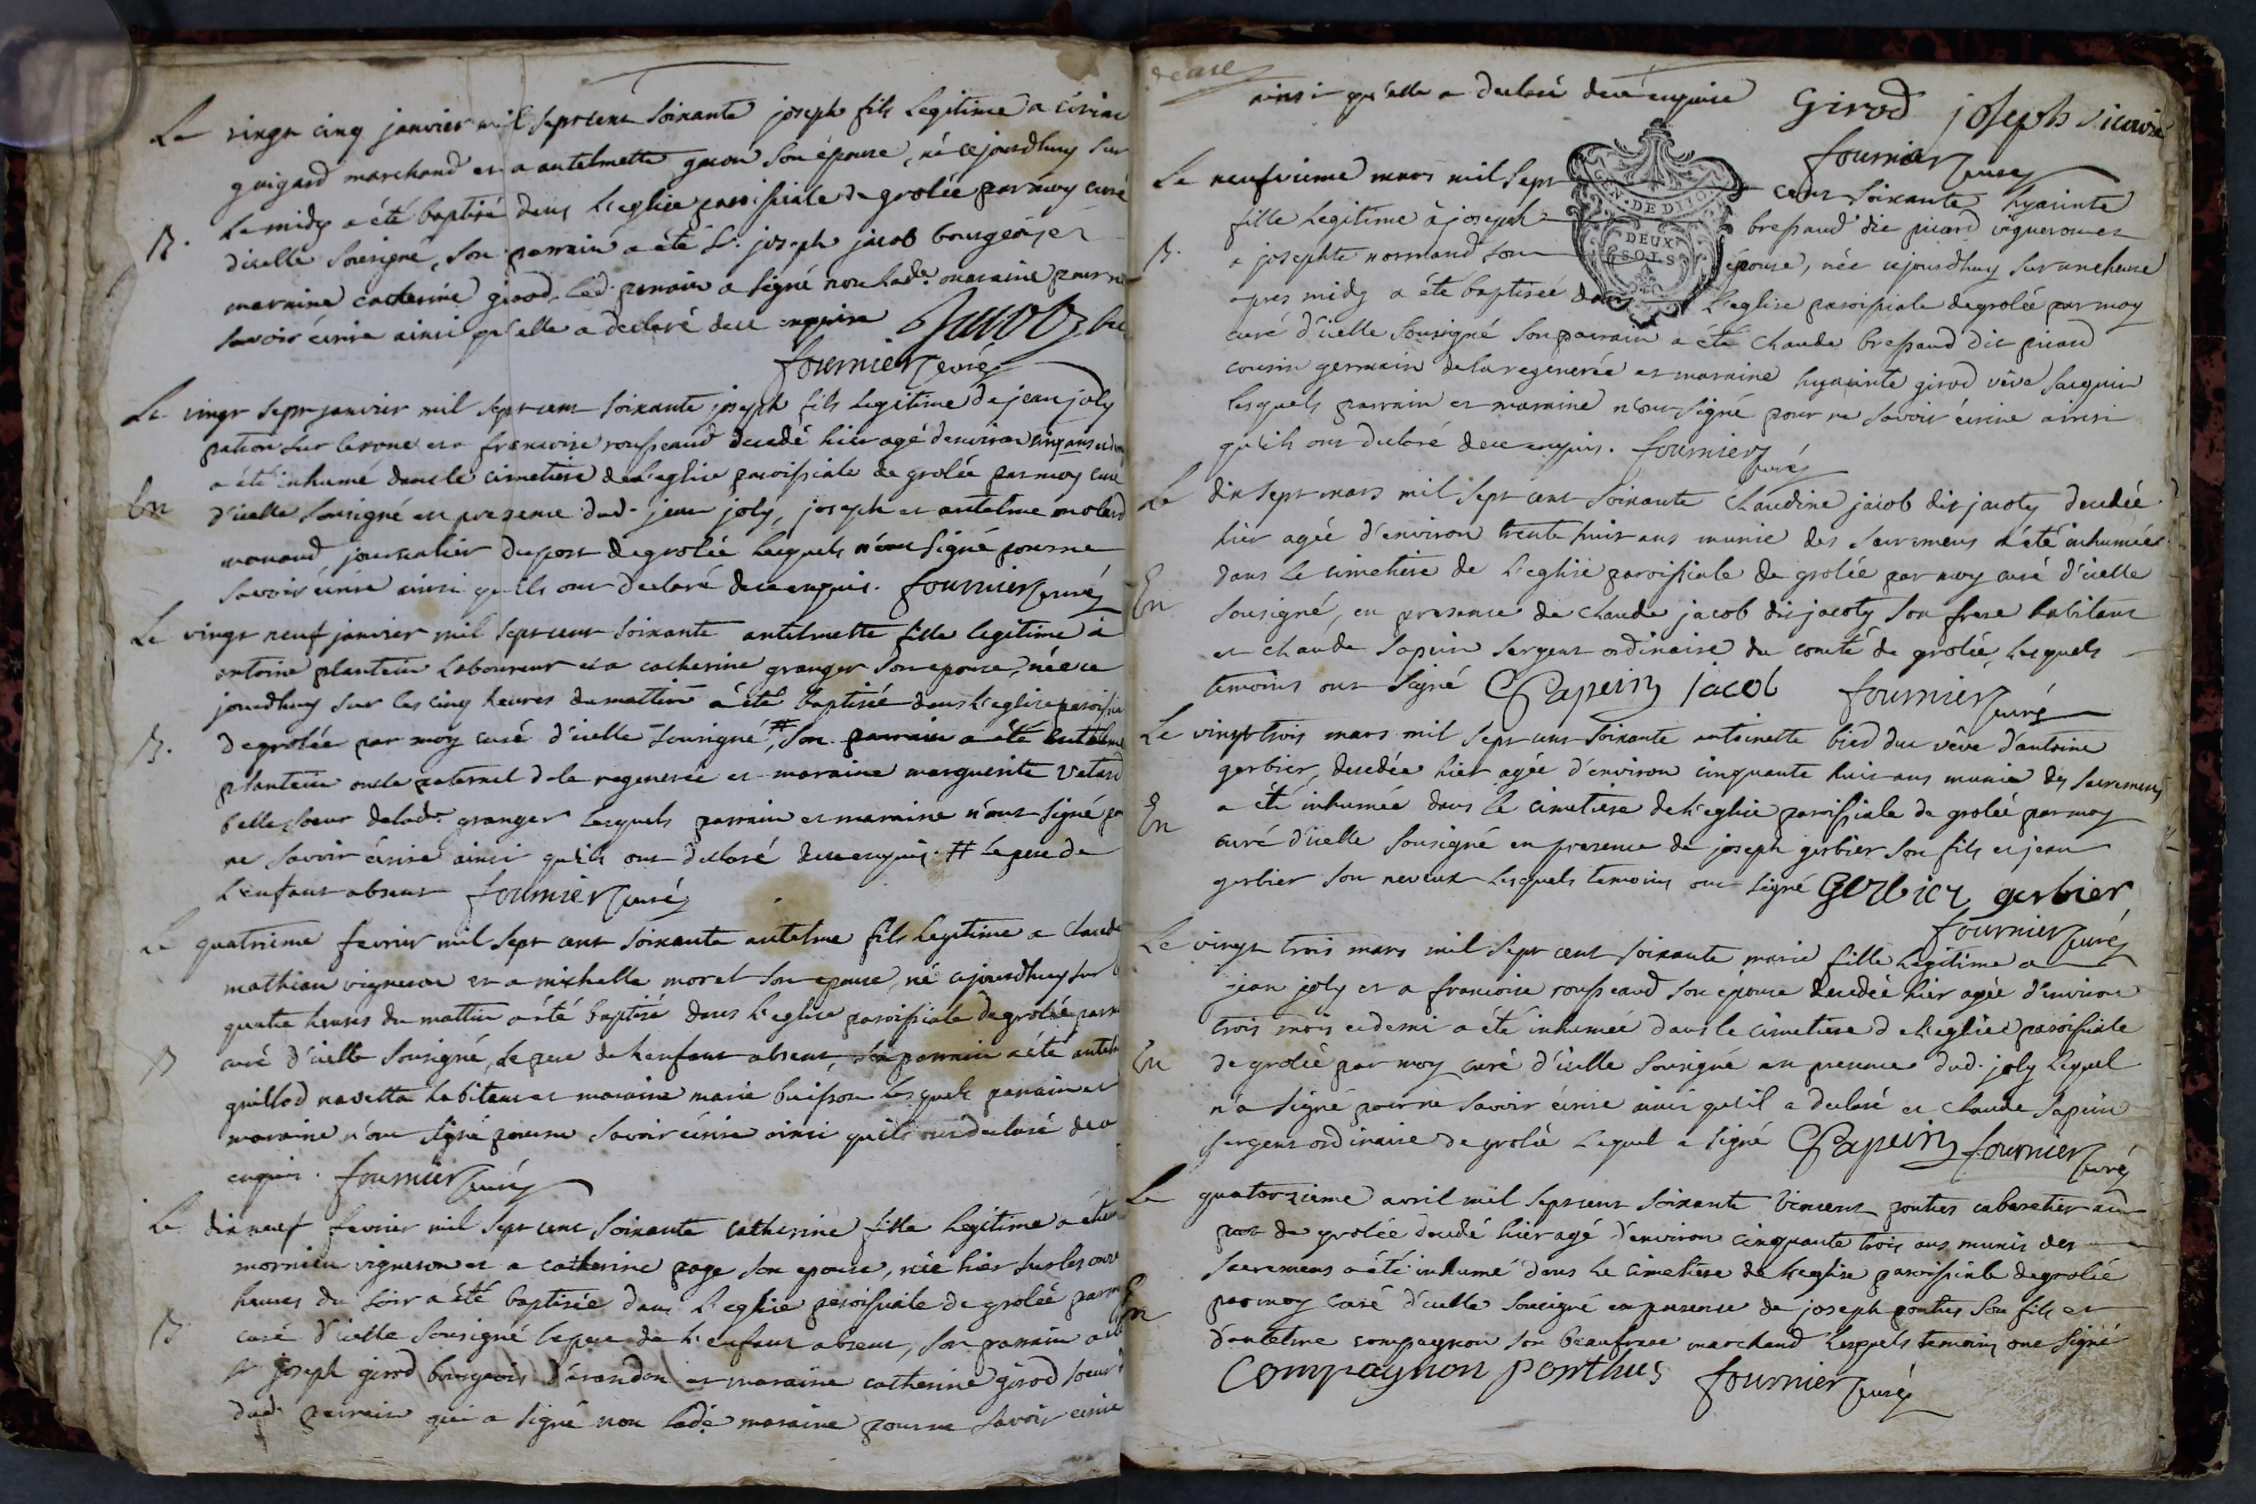 Le vingt cinq janvier mil sept cent soixante joseph fils legitime a
guigard marchand et a antelmette gacon son épouse, né cejourdhuy sur
B.
le midy a été baptisé dans l'eglise paroissiale de grolée par moy curé
d'icelle sousigné, son parrain a été Sr. joseph jacob bourgeois et
marraine catherine girod, led. parrain a signé non lade. maraine pour ne
savoir écrire ainsi qu'elle a declaré de ce enquise Jacob
fournier curé
Le vingt sept janvier mil sept cent soixante joseph fils legitime de jean joly
patron sur le rone et a francoise rousseaud decedé hier agé d'environ cinq ans
a été inhumé dans le cimetiere de l'eglise paroissiale de grolée par moy curé
En
d'icelle sousigné en presence dud. jean joly, joseph et antelme molard
journalier du port de grolée lesquels n'ont signé pour ne
savoir écrire ainsi qu'ils ont declaré de ce enquis. fournier curé
Le vingt neuf janvier mil sept cent soixante antelmette fille legitime à
antoine plantin laboureur et a catherine granger son epouse, née ce
jourdhuy sur les cinq heures du mattin a été baptisée dans l'eglise
B.
de grolée par moy curé d'icelle sousigné, # son parrain a été antelme
plantin oncle paternel de la regenerée et maraine marguerite
belle soeur delade. granger lesquels parrain et marraine n'ont signé
ne savoir écrire ainsi qu'ils ont declaré de ce enquis. # le pere de
l'enfant absent fournier curé
Le quatrieme fevrier mil sept cent soixante antelme fils legitime a claude
mathieu vigneron et a michelle morel son epouse, né cejourdhuy sur
quatre heures du mattin a été baptisé dans l'eglise paroissiale de grolée
B
curé d'icelle sousigné, le pere de l'enfant absent, son parrain a été
guillod navetta habitant et maraine marie buisson lesquels parrain et
maraine n'ont signé pour ne savoir écrire ainsi qu'ils ont declaré de ce
enquis. fournier curé
Le dix neuf fevrier mil sept cent soixante catherine fille legitime a
mornieu vigneron et a catherine page son epouse, née hier sur les onze
heures du soir a été baptisée dans l'eglise paroissiale de grolée
B
curé d'icelle sousigné le pere de l'enfant absent, son parrain a été
Sr joseph girod bourgeois d'érandon et maraine catherine girod soeur
dud. parrain qui a signé non lade. maraine pour ne savoir ecrire
ainsi qu'elle a declaré de ce enquise Girod joseph
fournier curé
Le neufvieme mars mil sept cent soixante hyacinte
GEN. DE DIJON
DEUX
SOLS
fille legitime à joseph bressaud dit picard vigneron et
B.
a josephte normand son épouse, née cejourdhuy sur une heure
apres midy a été baptisée dans l'eglise paroissiale de grolée par moy
curé d'icelle sousigné son parrain a été claude bressaud dit picard
cousin germain de la regenerée et maraine hyacinte girod vêve
lesquels parrain et maraine n'ont signé pour ne savoir écrire ainsi
qu'ils ont declaré de ce enquis. fournier curé
Le dix sept mars mil sept cent soixante claudine jacob dit jacoty decedée
hier agée d'environ trente huit ans munie des sacremens a été inhumée
dans le cimetiere de l'eglise paroissiale de grolée par moy curé d'icelle
En
sousigné, en presence de claude jacob dit jacoty son frere habitant
et claude sapin sergent ordinaire du comté de grolée, lesquels
temoins ont signé CSapein jacob fournier curé
Le vingt trois mars mil sept cent soixante antoinette vêve d'antoine
gerbier, decedée hier agée d'environ cinquante huit ans munie des sacremens
En
a été inhumée dans le cimetiere de l'eglise paroissiale de grolée par moy
curé d'icelle sousigné en presence de joseph gerbier son fils et jean
gerbier son neveux lesquels temoins ont signé gerbier gerbier
fournier curé
Le vingt trois mars mil sept cent soixante marie fille legitime a
jean joly et a francoise rousseaud son épouse decedée hier agée d'environ
trois mois et demi a été inhumée dans le cimetiere de l'eglise paroissiale
En
de grolée par moy curé d'icelle sousigné en presence dud. joly lequel
n'a signé pour ne savoir écrire ainsi qu'il a declaré et claude sapin
sergent ordinaire de grolée lequel a signé CSapein fournier curé
Le quatorzieme avril mil sept cent soixante vincent ponthus cabaretier au
port de grolée decedé hier agé d'environ cinquante trois ans munis des
sacremens a été inhumé dans le cimetiere de l'eglise paroissiale de grolée
En
par moy curé d'icelle sousigné en presence de joseph ponthus son fils et
d'antelme compagnon son beaufrere marchand lesquels temoins ont signé
Compagnon ponthus fournier curé